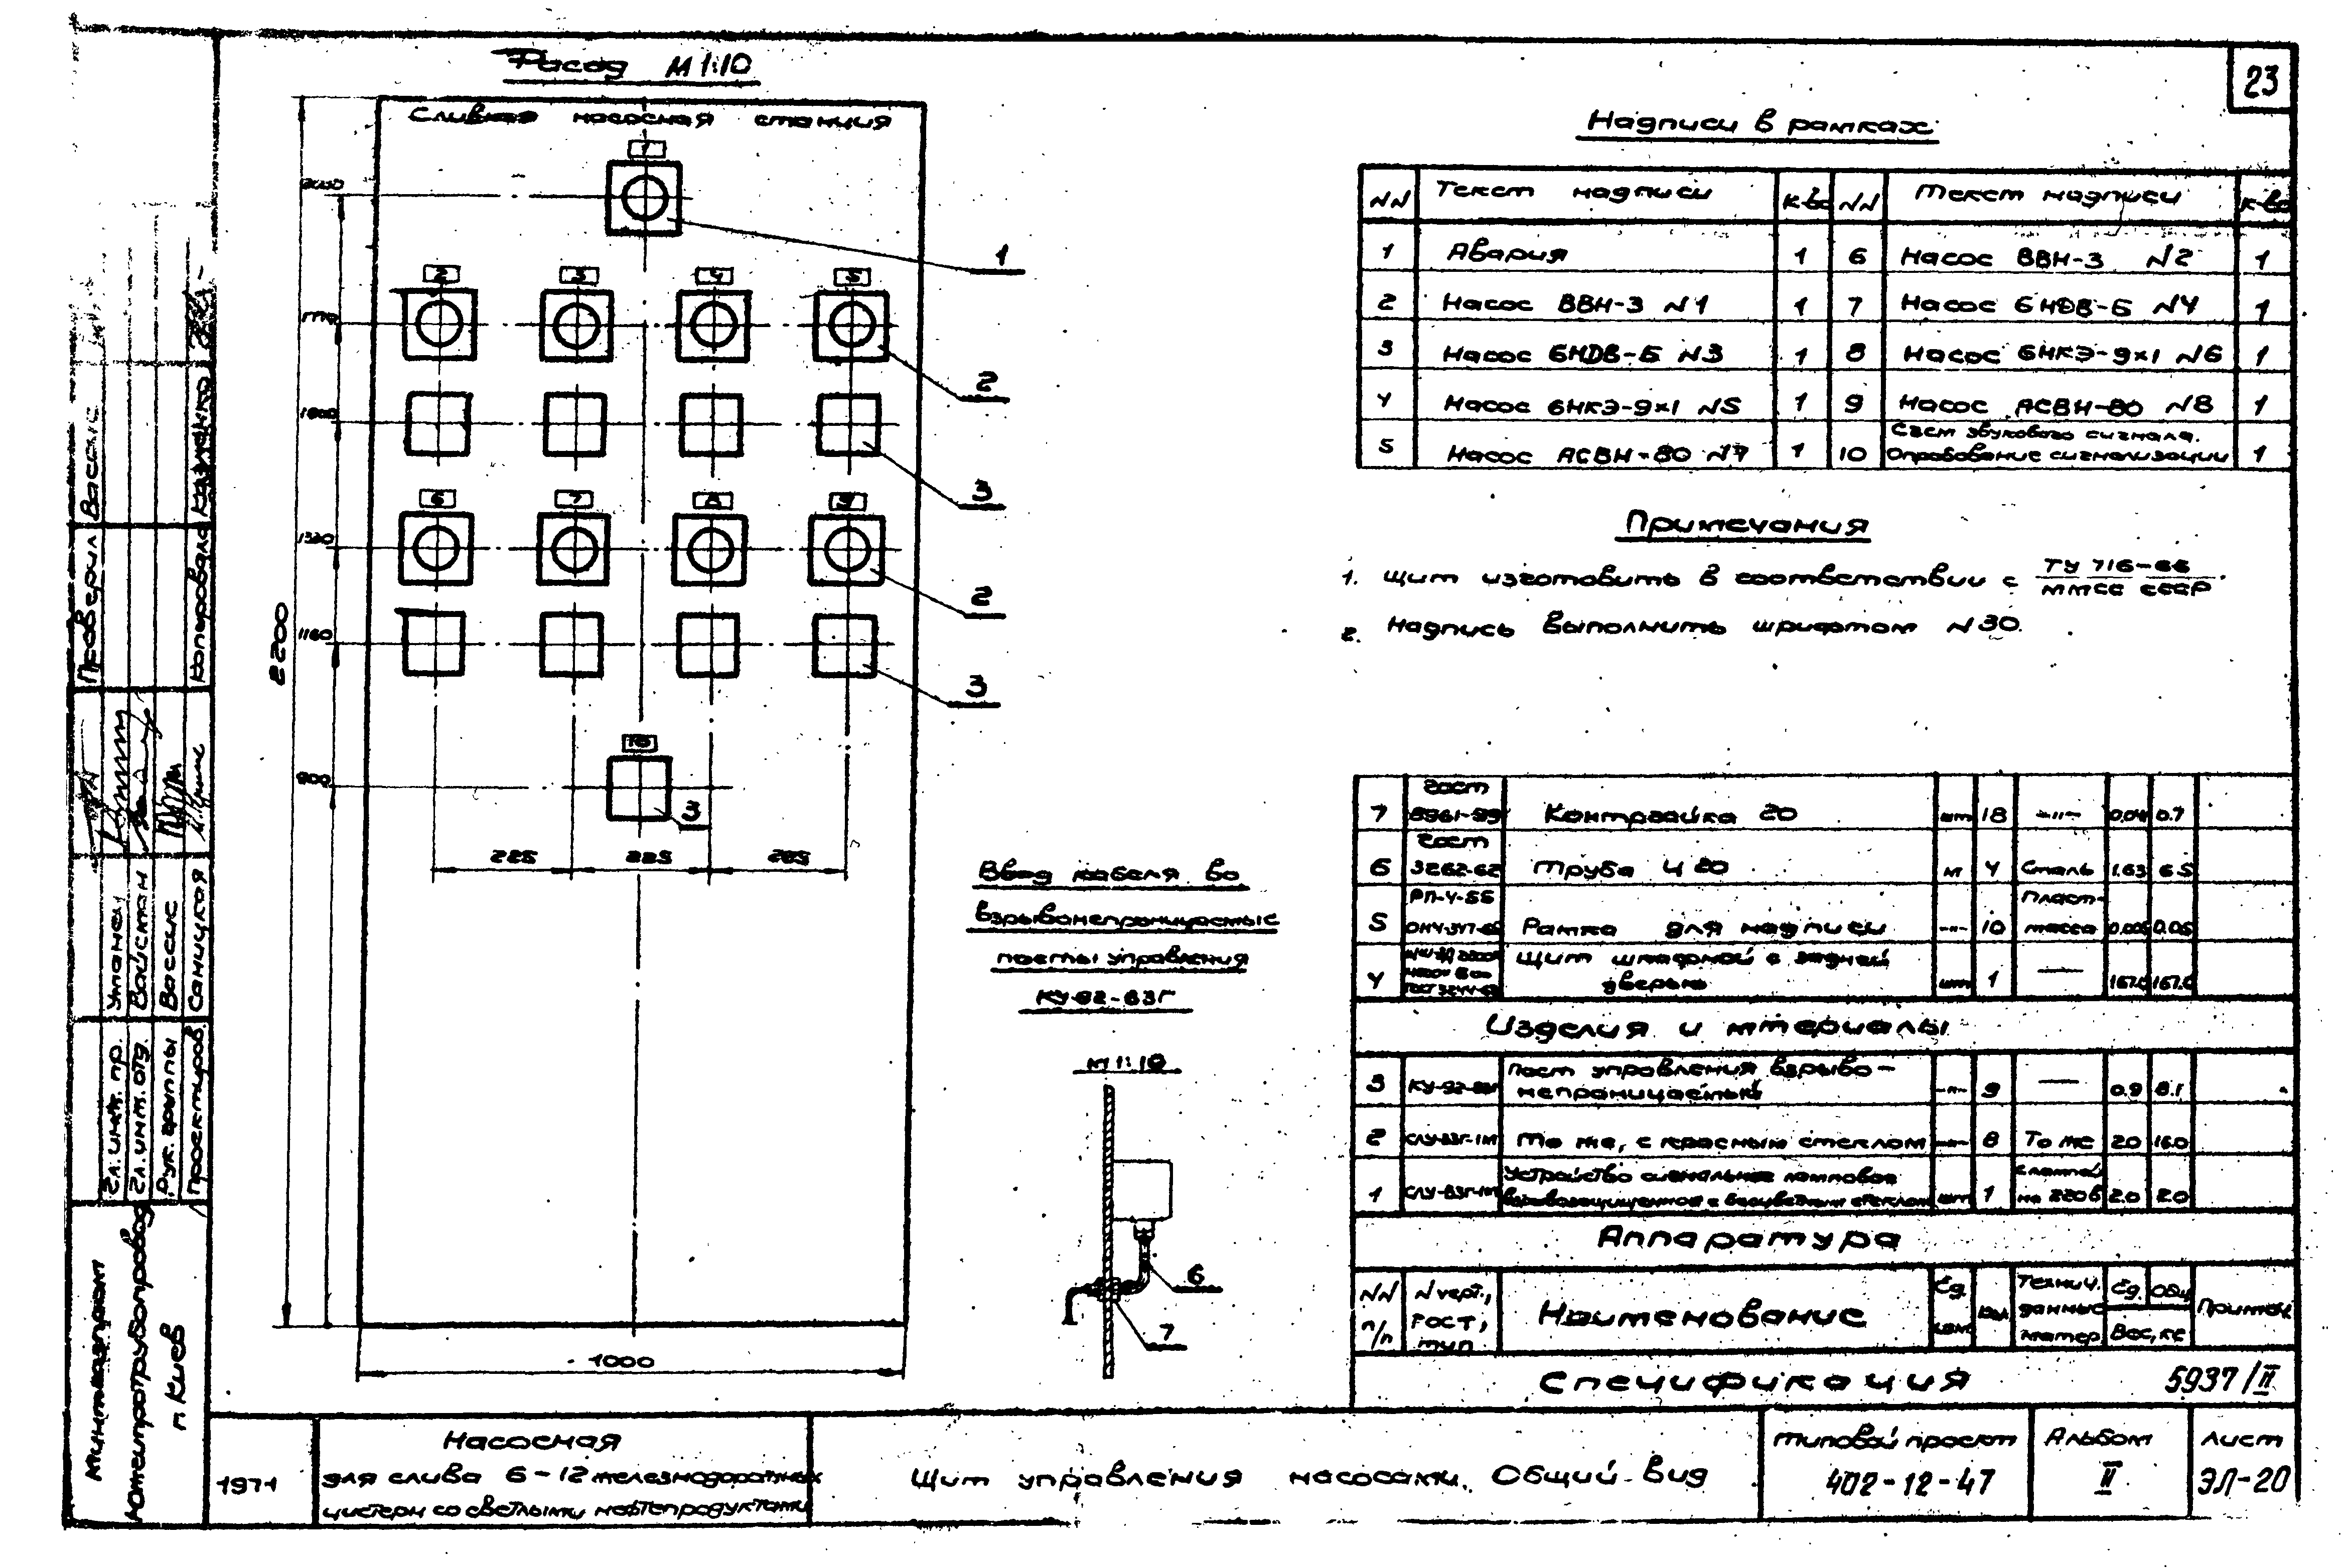 23
Фасад М 1:10
Сливная насосная станция
1
2 3 4 5
6 7 8 9
10
1
2
3
2
3
3
1600
1320
1160
900
2200
225 225 225
1000
Ввод кабеля во
взрывонепроницаемые
посты управления
КУ-92-ВЗГ
М 1:10
6
7
Надписи в рамках
NN Текст надписи к-во NN Текст надписи к-во
1 Авария 1 6 Насос ВВН-3 N2 1
2 Насос ВВН-3 N1 1 7 Насос 6НДВ-Б N4 1
3 Насос 6НДВ-Б N3 1 8 Насос 6НКЭ-9х1 N6 1
4 Насос 6НКЭ-9х1 N5 1 9 Насос АСВН-80 N8 1
5 Насос АСВН-80 N7 1 10 Съем звукового сигнала.
Опробование сигнализации 1
Примечания
1. Щит изготовить в соответствии с ТУ 716-66
ММСС СССР
2. Надпись выполнить шрифтом N30.
7 Гост
8961-59 Контргайка 20 шт 18 -"- 0,04 0.7
6 Гост
3262-62 Труба Ц 20 м 4 Сталь 1.63 6.5
5 РП-4-55 Рамка для надписи -"- 10 Пласт-
масса 0,005 0.05
4 Щит шкафной с задней
дверью шт 1 — 167.0 167.0
Изделия и мтериалы
3 КУ-92-ВЗГ Пост управления взрыво-
непроницаемый -"- 9 — 0.9 8.1
2 СЛУ-ВЗГ-1М То же, с красным стеклом -"- 8 То же 2.0 16.0
1 СЛУ-ВЗГ-1М Устройство сигнальное ламповое
взрывозащищенное с бесцветным стеклом шт 1 с лампой
на 220 в 2.0 2.0
Аппаратура
NN
п/п N черт.,
ГОСТ,
тип Наименование Ед.
изм. Кол. Технич.
данные
матер. Ед. Общ.
Вес, кг Примеч.
Спецификация 5937/II
1971
Насосная
для слива 6-12 железнодорожных
цистерн со светлыми нефтепродуктами
Щит управления насосами. Общий вид
Типовой проект
402-12-47
Альбом
II
Лист
ЭЛ-20
Проверил Вассис
Копировала Казманко
Гл. инж. пр. Уманец
Гл. инж. отд. Вайсман
Рук. группы Вассис
Проектиров. Саницкая
Мингазпром
Южгипротрубопровод
г. Киев